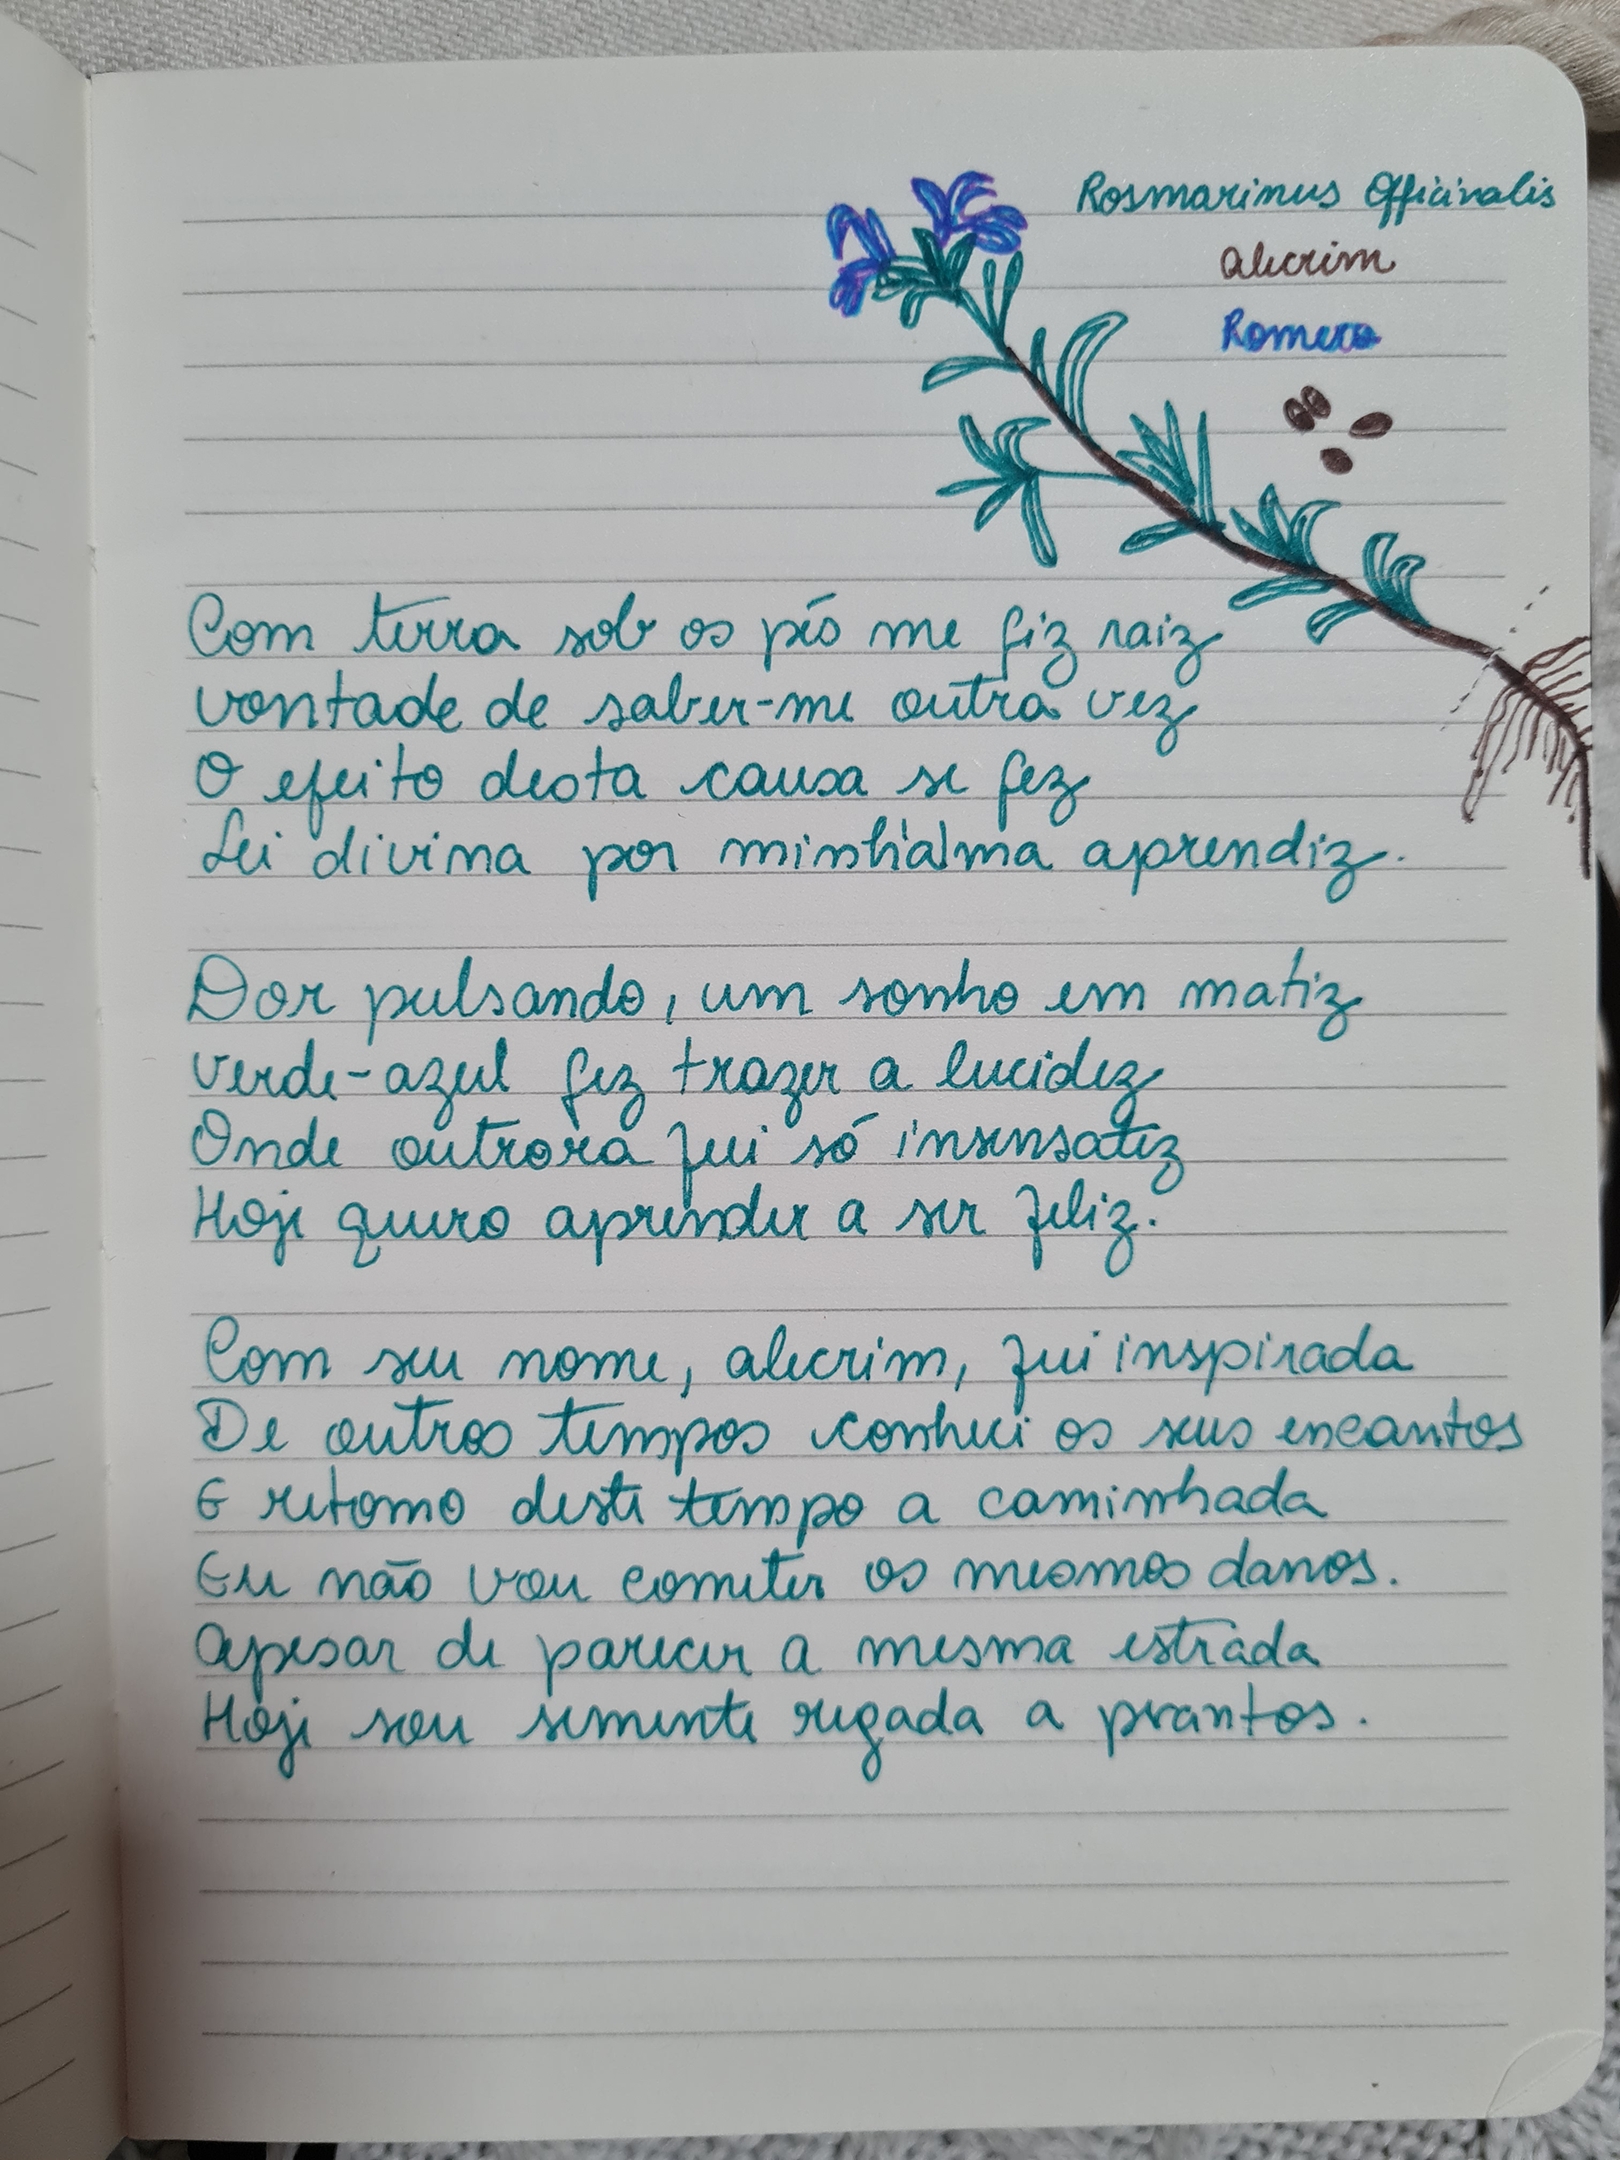 Rosmarinus Officinalis
alecrim
Romero
Com terra sob os pés me fiz raiz
vontade de saber-me outra vez
O efeito desta causa se fez
Lei divina por minh'alma aprendiz.
Dor pulsando, um sonho em matiz
verde-azul fez trazer a lucidez
Onde outrora fui só insensatez
Hoje quero aprender a ser feliz.
Com seu nome, alecrim, fui inspirada
De outros tempos conheci os seus encantos
E retomo deste tempo a caminhada
Eu não vou cometer os mesmos danos.
apesar de parecer a mesma estrada
Hoje sou semente regada a prantos.